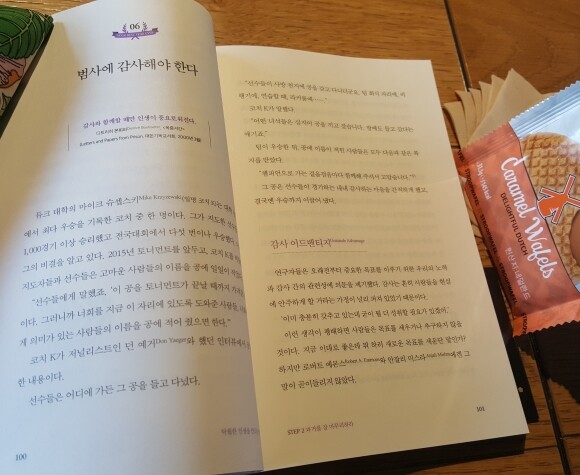 06
범사에 감사해야 한다
감사와 함께할 때만 인생이 풍요로워진다.
(Letters and Papers from Prison, 대한기독교서회, 2000년 7월)
듀크 대학의 마이크 슈셉스키Mike Krzyzewski(일명 코치 K)는 대학
에서 최다 우승을 기록한 코치 중 한 명이다. 그가 지도한
1,000경기 이상 승리했고 전국대회에서 다섯 번이나 우승했다.
그의 비결을 알고 있다. 2015년 토너먼트를 앞두고, 코치 K
지도자와 선수들은 고마운 사람들의 이름을 공에 일일이
“선수들에게 말했죠. ‘이 공을 토너먼트가 끝날 때까지
이다. 그러니까 너희를 지금 이 자리에 있도록 도와준 사람들
게 의미가 있는 사람들의 이름을 공에 적어 줬으면 한다.’”
코치 K가 저널리스트인 던 예거Don Yaeger와 했던 인터뷰에서
한 내용이다.
선수들은 어디에 가든 그 공을 들고 다녔다.
100
코치 K가 말했다.
“어떤 녀석들은 심지어 공을 끼고 잤습니다. 방에도 들고 갔다는
얘기죠.”
팀이 우승한 뒤, 공에 이름이 적힌 사람들은 모두 다음과 같은 쪽
지를 받았다.
“챔피언으로 가는 길을 함께해 주셔서 고맙습니다.”
그 공은 선수들이 경기하는 내내 감사하는 마음을 간직하게 했고
결국엔 우승까지 이끌어 냈다.
감사 어드밴티지Gratitude Advantage
연구자들은 오래전부터 중요한 목표를 이루기 위한 우리의 노력
과 감사 간의 관련성에 의문을 제기했다. 감사는 흔히 사람들을 현실
에 안주하게 할 거라는 가정이 널리 퍼져 있었기 때문이다.
‘이미 충분히 갖추고 있는데 굳이 뭘 더 성취할 필요가 있겠어.’
이런 생각이 팽배하면 사람들은 목표를 세우거나 추구하지 않을
것이다. 지금 이대로 좋은데 뭐 하러 새로운 목표를 세운단 말인가?
하지만 로버트 에몬스Robert A. Emmons와 안잘리 미스라Anjali Mishra에겐 그
말이 곧이들리지 않았다.
STEP 2 과거를 잘 마무리하라
101
Caramel Wafels
DELIGHTFUL DUTCH